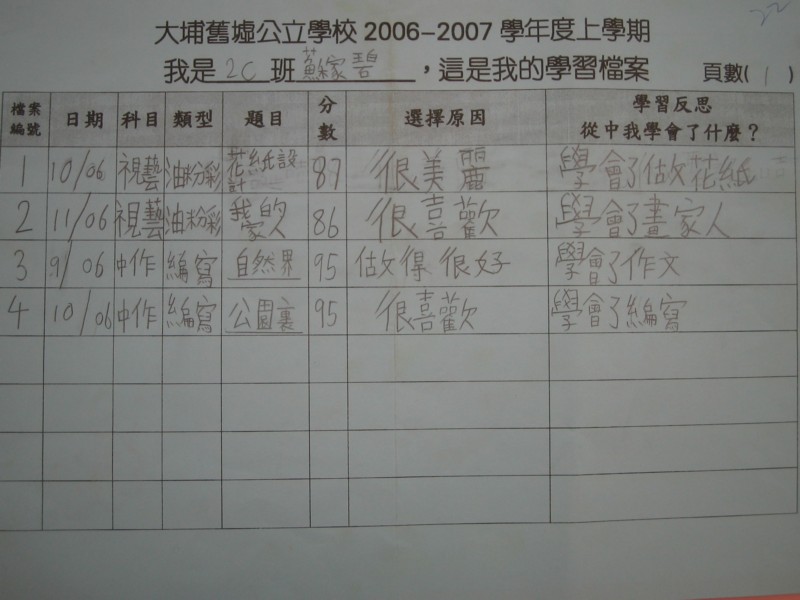 22
大埔舊墟公立學校 2006-2007 學年度上學期
我是 2C 班 蘇稼碧 ，這是我的學習檔案 頁數( 1 )
檔案編號 日期 科目 類型 題目 分數 選擇原因 學習反思 從中我學會了什麼？
1 10/06 視藝 油粉彩 花紙設計 87 很美麗 學會了做花紙
2 11/06 視藝 油粉彩 我的家人 86 很喜歡 學會了畫家人
3 9/06 中作 編寫 自然界 95 做得很好 學會了作文
4 10/06 中作 編寫 公園裏 95 很喜歡 學會了編寫